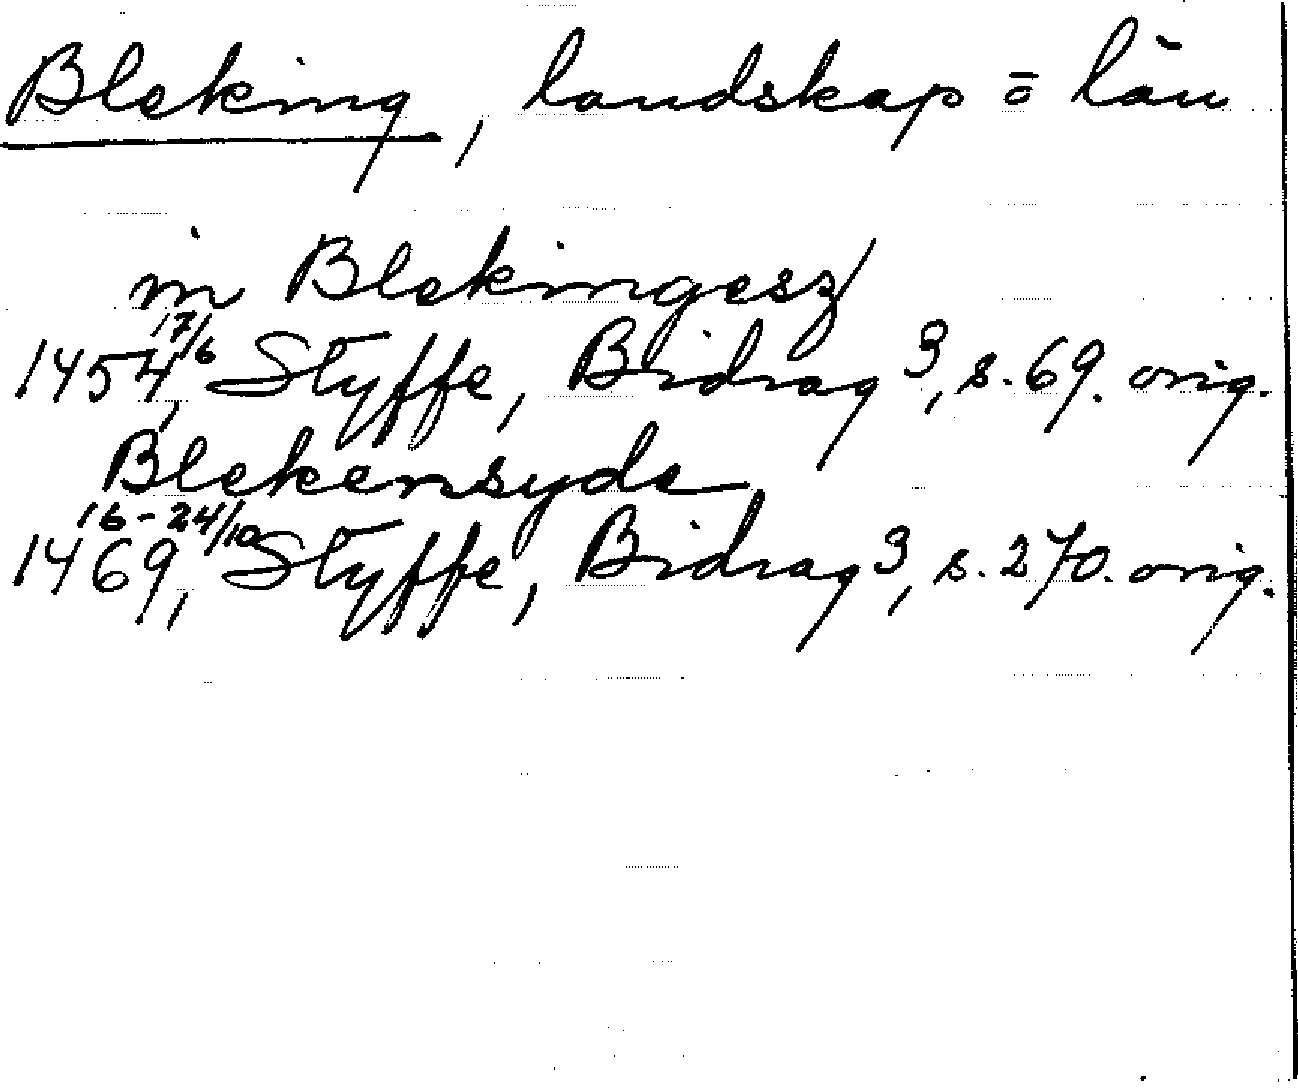 Bleking, landskap o län
in Blekingesz
17/6
1454, Styffe, Bidrag 3, s. 69. orig.
Blekensyde
16-24/10
1469, Styffe, Bidrag 3, s. 270. orig.